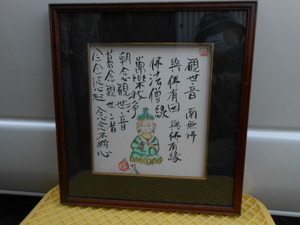 觀世音 南無佛
與佛有因 與佛有緣
佛法僧緣
常樂我淨
朝念觀世音
暮念觀世音
念念從心起 念念不離心